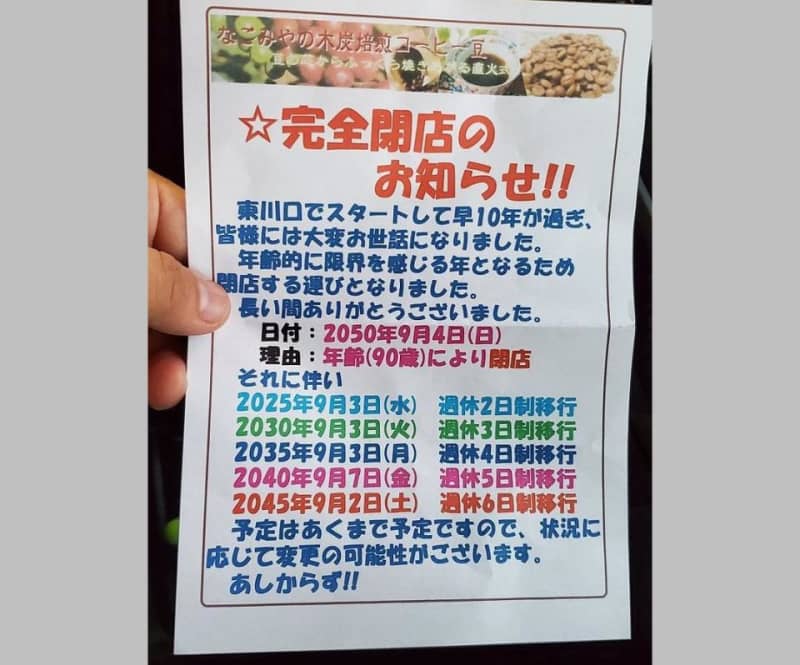 なごみやの木炭焙煎コーヒー豆
☆完全閉店の
お知らせ!!
東川口でスタートして早10年が過ぎ、
皆様には大変お世話になりました。
年齢的に限界を感じる年となるため
閉店する運びとなりました。
長い間ありがとうございました。
日付：2050年9月4日(日)
理由：年齢(90歳)により閉店
それに伴い
2025年9月3日(水) 週休2日制移行
2030年9月3日(火) 週休3日制移行
2035年9月3日(月) 週休4日制移行
2040年9月7日(金) 週休5日制移行
2045年9月2日(土) 週休6日制移行
予定はあくまで予定ですので、状況に
応じて変更の可能性がございます。
あしからず!!